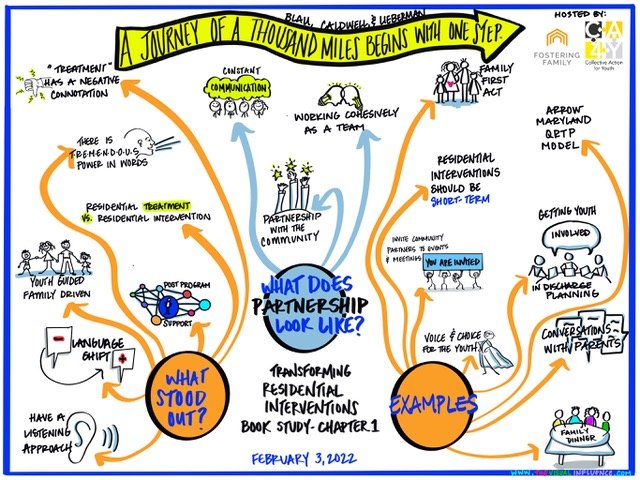 BLAU, CALDWELL, & LIEBERMAN
A JOURNEY OF A THOUSAND MILES BEGINS WITH ONE STEP.
HOSTED BY:
FOSTERING
FAMILY
CA
4Y
Collective Action
for Youth
"TREATMENT"
HAS A NEGATIVE
CONNOTATION
THERE IS
T.R.E.M.E.N.D.O.U.S
POWER IN WORDS
RESIDENTIAL TREATMENT
VS. RESIDENTIAL INTERVENTION
YOUTH GUIDED
FAMILY DRIVEN
POST PROGRAM
SUPPORT
LANGUAGE
SHIFT
HAVE A
LISTENING
APPROACH
WHAT
STOOD
OUT?
CONSTANT
COMMUNICATION
WORKING COHESIVELY
AS A TEAM
PARTNERSHIP
WITH THE
COMMUNITY
WHAT DOES
PARTNERSHIP
LOOK LIKE?
TRANSFORMING
RESIDENTIAL
INTERVENTIONS
BOOK STUDY - CHAPTER 1
FEBRUARY 3, 2022
FAMILY
FIRST
ACT
RESIDENTIAL
INTERVENTIONS
SHOULD BE
SHORT-TERM
INVITE COMMUNITY
PARTNERS TO EVENTS
& MEETINGS
YOU ARE INVITED
VOICE & CHOICE
FOR THE YOUTH
EXAMPLES
ARROW
MARYLAND
QRTP
MODEL
GETTING YOUTH
INVOLVED
IN DISCHARGE
PLANNING
CONVERSATIONS
WITH PARENTS
FAMILY
DINNER
WWW.THEVISUALINFLUENCE.COM